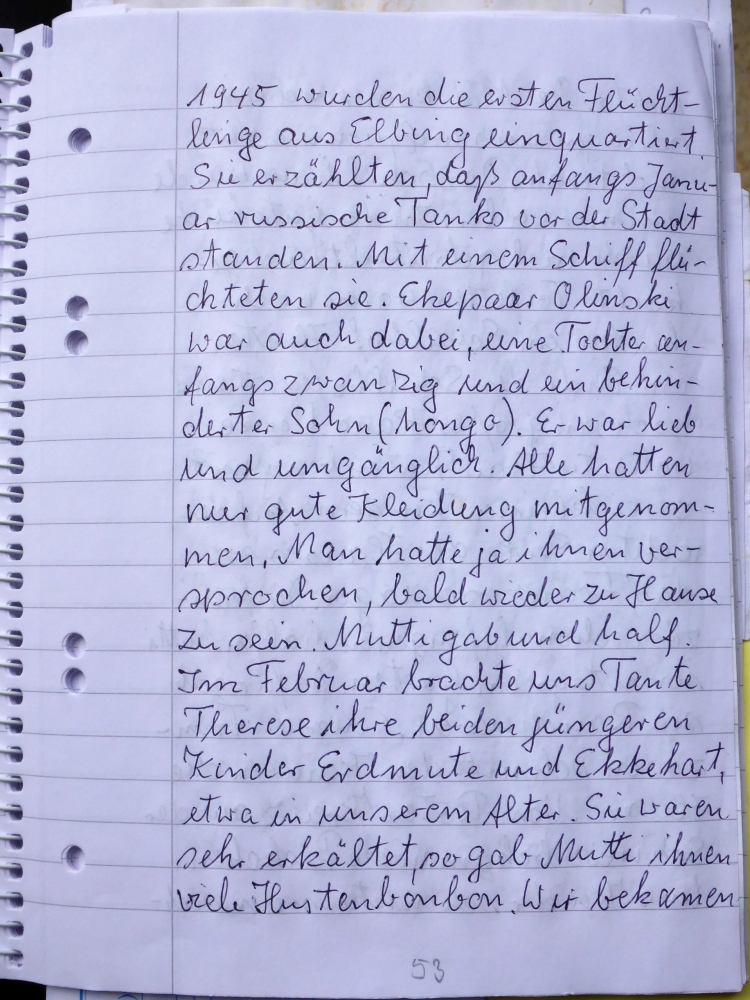 1945 wurden die ersten Flücht-
linge aus Elbing einquartiert.
Sie erzählten, daß anfangs Janu-
ar russische Tanks vor der Stadt
standen. Mit einem Schiff flü-
chteten sie. Ehepaar Olinski
war auch dabei, eine Tochter an-
fangs zwanzig und ein behin-
derter Sohn (mongo). Er war lieb
und umgänglich. Alle hatten
nur gute Kleidung mitgenom-
men. Man hatte ja ihnen ver-
sprochen, bald wieder zu Hause
zu sein. Mutti gab und half.
Im Februar brachte uns Tante
Therese ihre beiden jüngeren
Kinder Erdmute und Ekkehart,
etwa in unserem Alter. Sie waren
sehr erkältet, so gab Mutti ihnen
viele Hustenbonbon. Wir bekamen
53